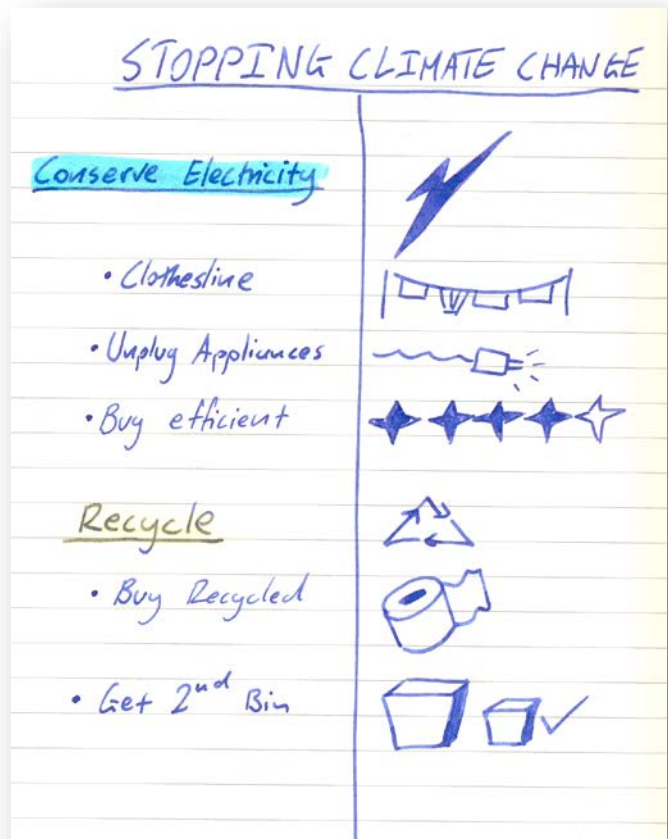 STOPPING CLIMATE CHANGE
Conserve Electricity
• Clothesline
• Unplug Appliances
• Buy efficient
Recycle
• Buy Recycled
• Get 2nd Bin